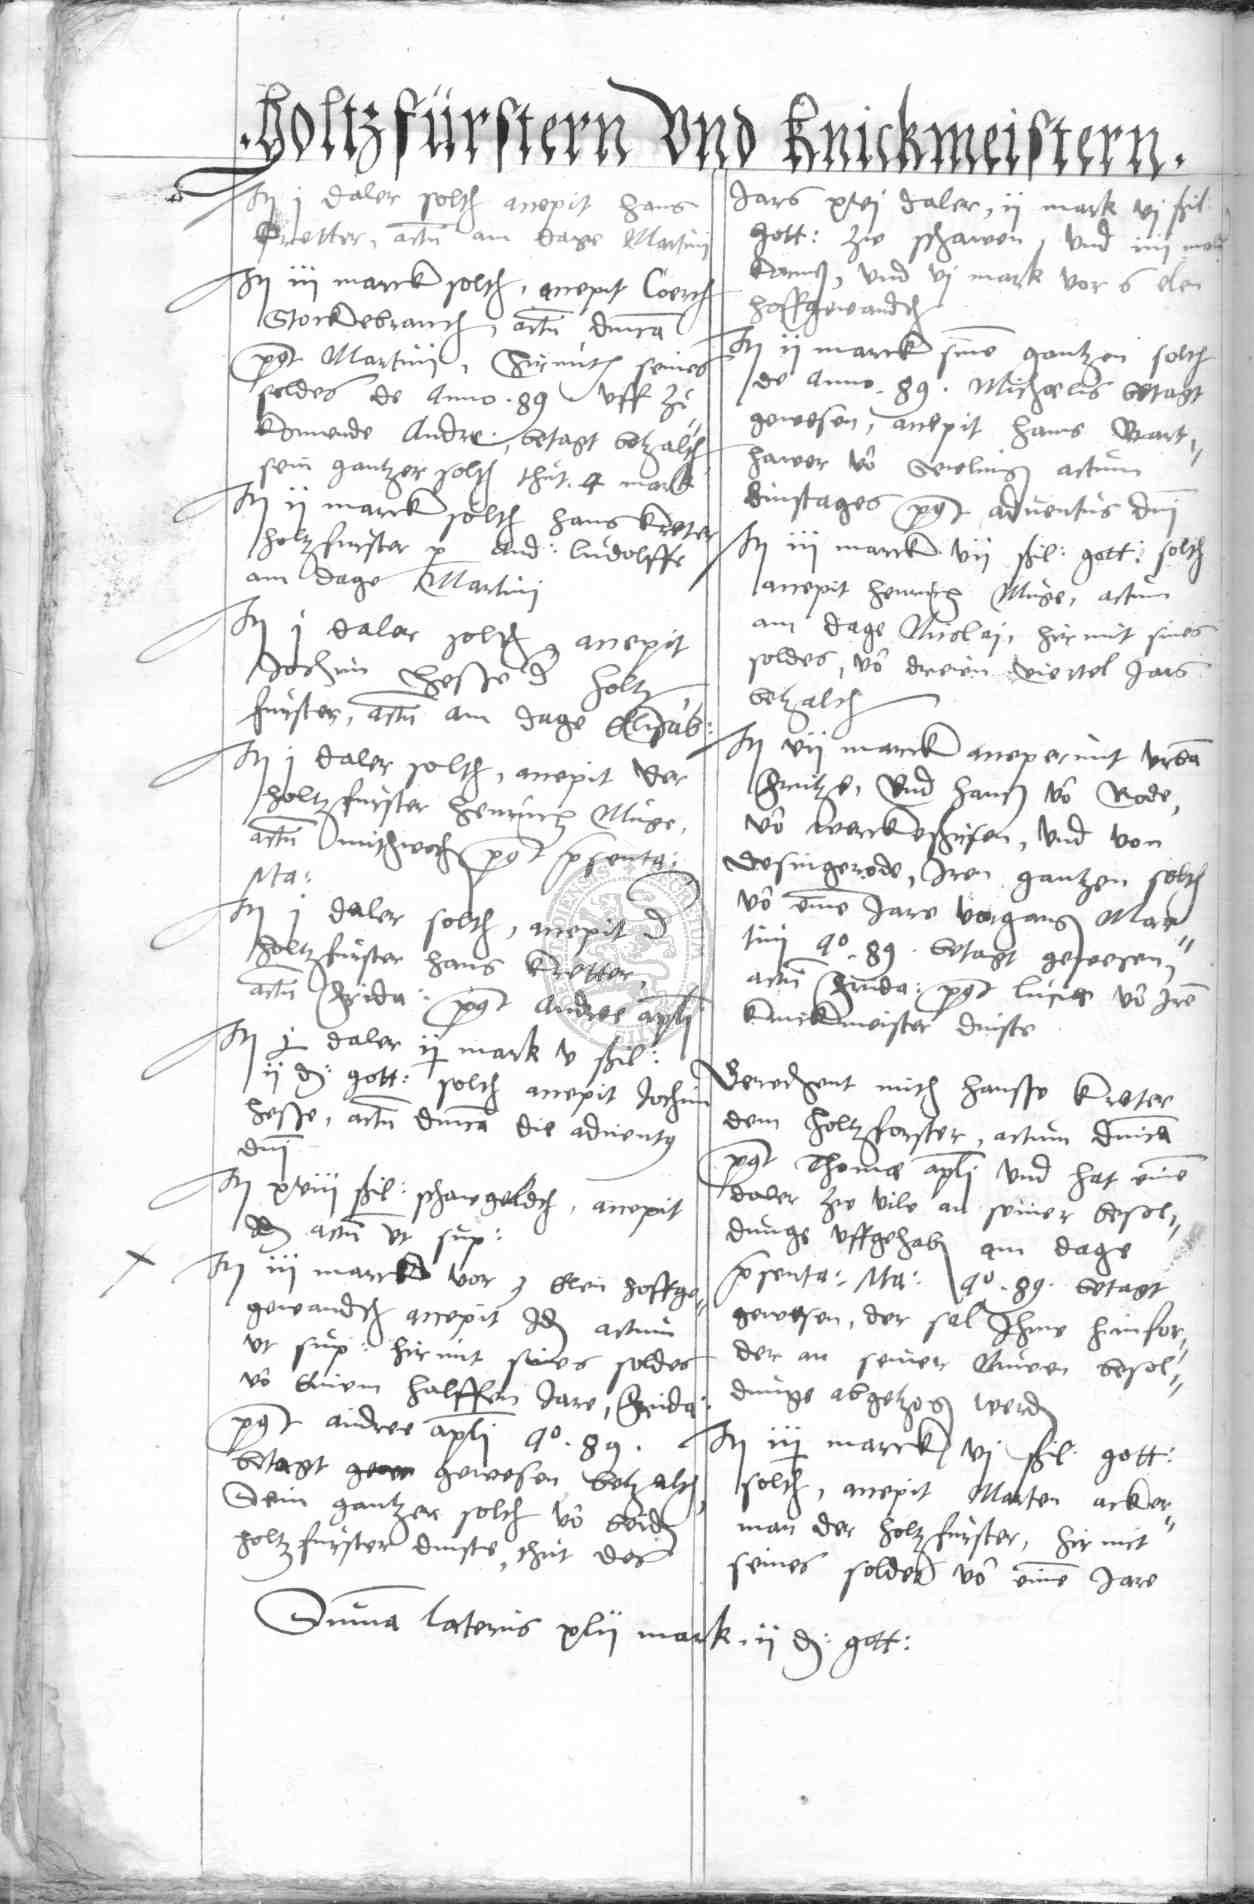 .Holtzfürstern Vnd Knickmeistern.
It j daler solth accepit Hans
Kretter, actū am dage Martinj
It iij marck solth, accepit Coerdt
Stockebrandt, actū dnīca
post Martinj, hirmith seines
soldes de Anno .89 vff zū
komende Andre:, betagt betzalth
sein gantzer solth thut .4 mark
It ij marck solth Hans Kreter
holtzfurster p And: Ludolffe
am dage Martinj
It j daler solth, accepit
Jochim Hesse d holtz
furster, actū am dage Elisab:
It j daler solth, accepit der
holtzfürster Henrich Müge,
actū mithwoch post psenta:
Ma:
It j daler solth, accepit d
holtzfürster Hans Kretter,
actū Frida: post Andree apli
It j daler ij mark v ßil:
ij d: gott: solth accepit Jochim
Hesse, actū dnīca die adventus
dnī
It xviij ßil: schawgeldt, accepit
Id actū vt sup:
It iij marck vor 3 Elen hoffge-
gewandth accepit Id actum
vt sup: hirmit seines soldes
vō Einem halffen Jare, Frida:
post andree apli Ao. 89.
betagt gewesen betzalth,
Sein gantzer solth vō beid
holtzfürster dinste, thut des
Jars xvj daler, ij mark vj ßil:
gott: zw schawen, vnd iiij
korns, vnd vj mark vor 6 elen
hoffgewandth
It ij marck sine gantzen solth
de Anno .89. Michaelis betagt
gewesen, accepit Hans
hawer vō actum
dinstages post adventus dnī
It iij marck vij ßil: gott: solth
accepit Henrich Müge, actum
am dage Nicolaj, hirmit sines
soldes, vō dreien viertel Jars
betzalth
It vij marck acceperunt vrbā
Fritze, vnd Hans vō Rode,
vō werckeshusen, vnd von
Desingerode, Iren gantzen solth
vō eime Jare vorgang Mar-
tini Ao. 89. betagt gewesen,
actū Frida: post Lucie vō Irē
knickmeister dinste
Berechent mith Hansse Kreter
dem Holtzforster, actum dnīca
post Thomæ apli vnd hat eine
daler zw vile an seiner besol-
dunge vffgehab, am dage
psenta: Ma: Ao. 89. betagt
gewesen, der sol Ihme hinfor-
der an seiner Nuwen besol-
dunge abgetzog werd
It iij marck vj ßil: gott:
solth, accepit Marten acker-
man der holtzfürster, hirmit
seines soldes vō eime Jare
Suma lateris xlij mark. ij d: gott: